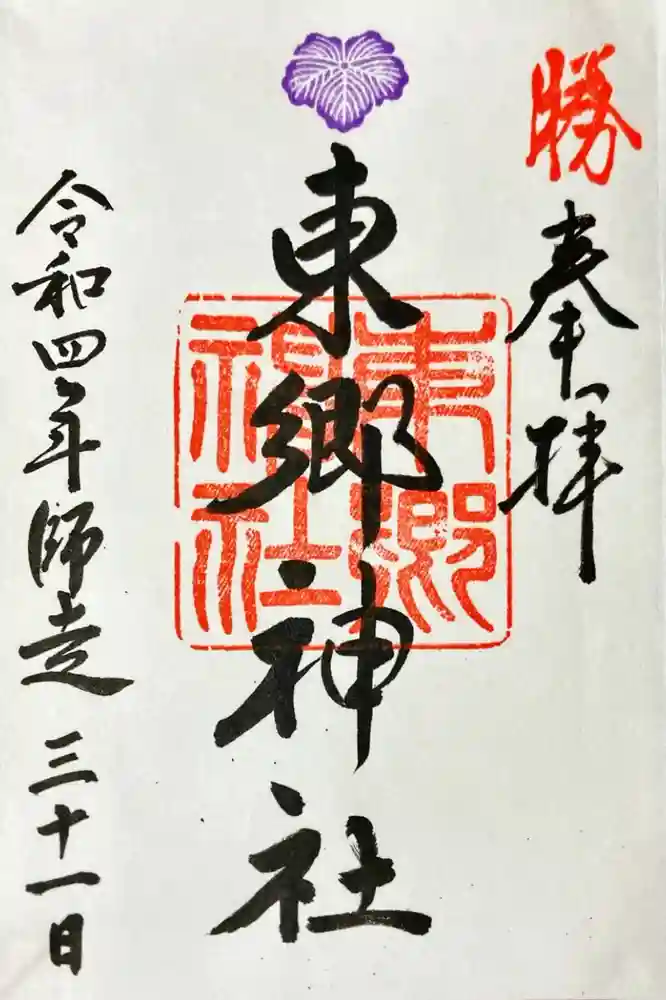 勝
奉拝
東郷神社
東郷神社
令和四年師走三十一日